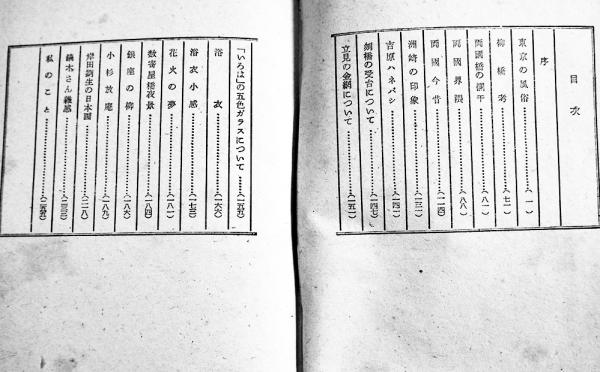 目次
序
東京の風俗……(一)
柳橋考……(七一)
両國橋の欄干……(八一)
両國界隈……(八八)
両國今昔……(一一四)
洲崎の印象……(一三一)
吉原ハネバシ……(一四二)
刎橋の受台について……(一四七)
立見の金網について……(一五一)
「いろは」の五色ガラスについて……(一五九)
浴衣……(一六六)
浴衣小感……(一七三)
花火の夢……(一八一)
数寄屋橋夜景……(一八四)
銀座の柳……(一八六)
小杉放庵……(一八九)
岸田劉生の日本画……(二一八)
鏑木さん雑感……(二三三)
私のこと……(二五五)